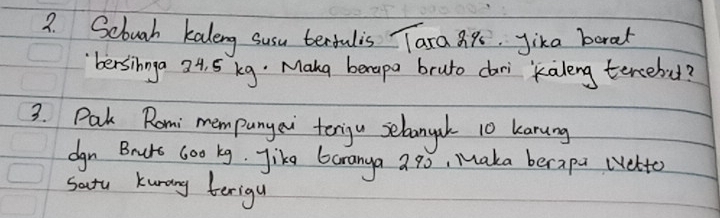 2. Sebuah kaleng susu tertulis Tara 2%. Jika berat
bersihnya 24,5 kg. Maka berapa bruto dari kaleng tercebut?
3. Pak Romi mempunyai terigu sebanyak 10 karung
dgn Bruto 600 kg. Jika taranya 2%, Maka berapa Netto
satu kurang terigu